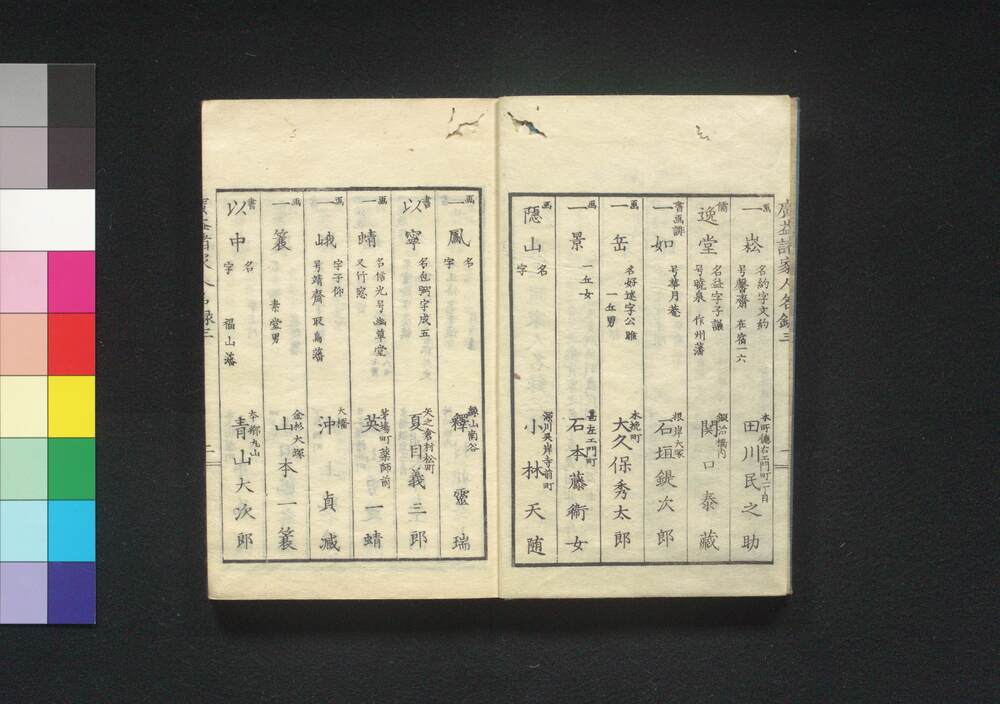 廣益諸家人名録三
畫 一崧 名約字文約 号馨齋 在宿一六 本町德右エ門町一丁目 田川民之助
儒 逸堂 名益字子謙 号曉泉 作州藩 鍛冶橋内 関口泰藏
書畫 一如 号華月菴 根岸大塚 石垣鍉次郎
畫 一岳 名好述字公雖 一丘男 本挽町 大久保秀太郎
畫 一景 一丘女 甚左エ門町 石本藤衛女
畫 隱山 名 字 深川具岸寺前町 小林天随
畫 一鳳 名 字 縁山南谷 釋靈瑞
書 以寧 名 字成五 矢之倉村松町 夏目義三郎
畫 一蜻 名信光号幽草堂 又竹窓 茅場町薬師前 英一蜻
畫 一峨 字子仰 号靖齋 取鳥藩 大橋 沖貞減
畫 一簑 素堂男 金杉大塚 山本一簑
書 以中 名 字 福山藩 本郷丸山 青山大次郎